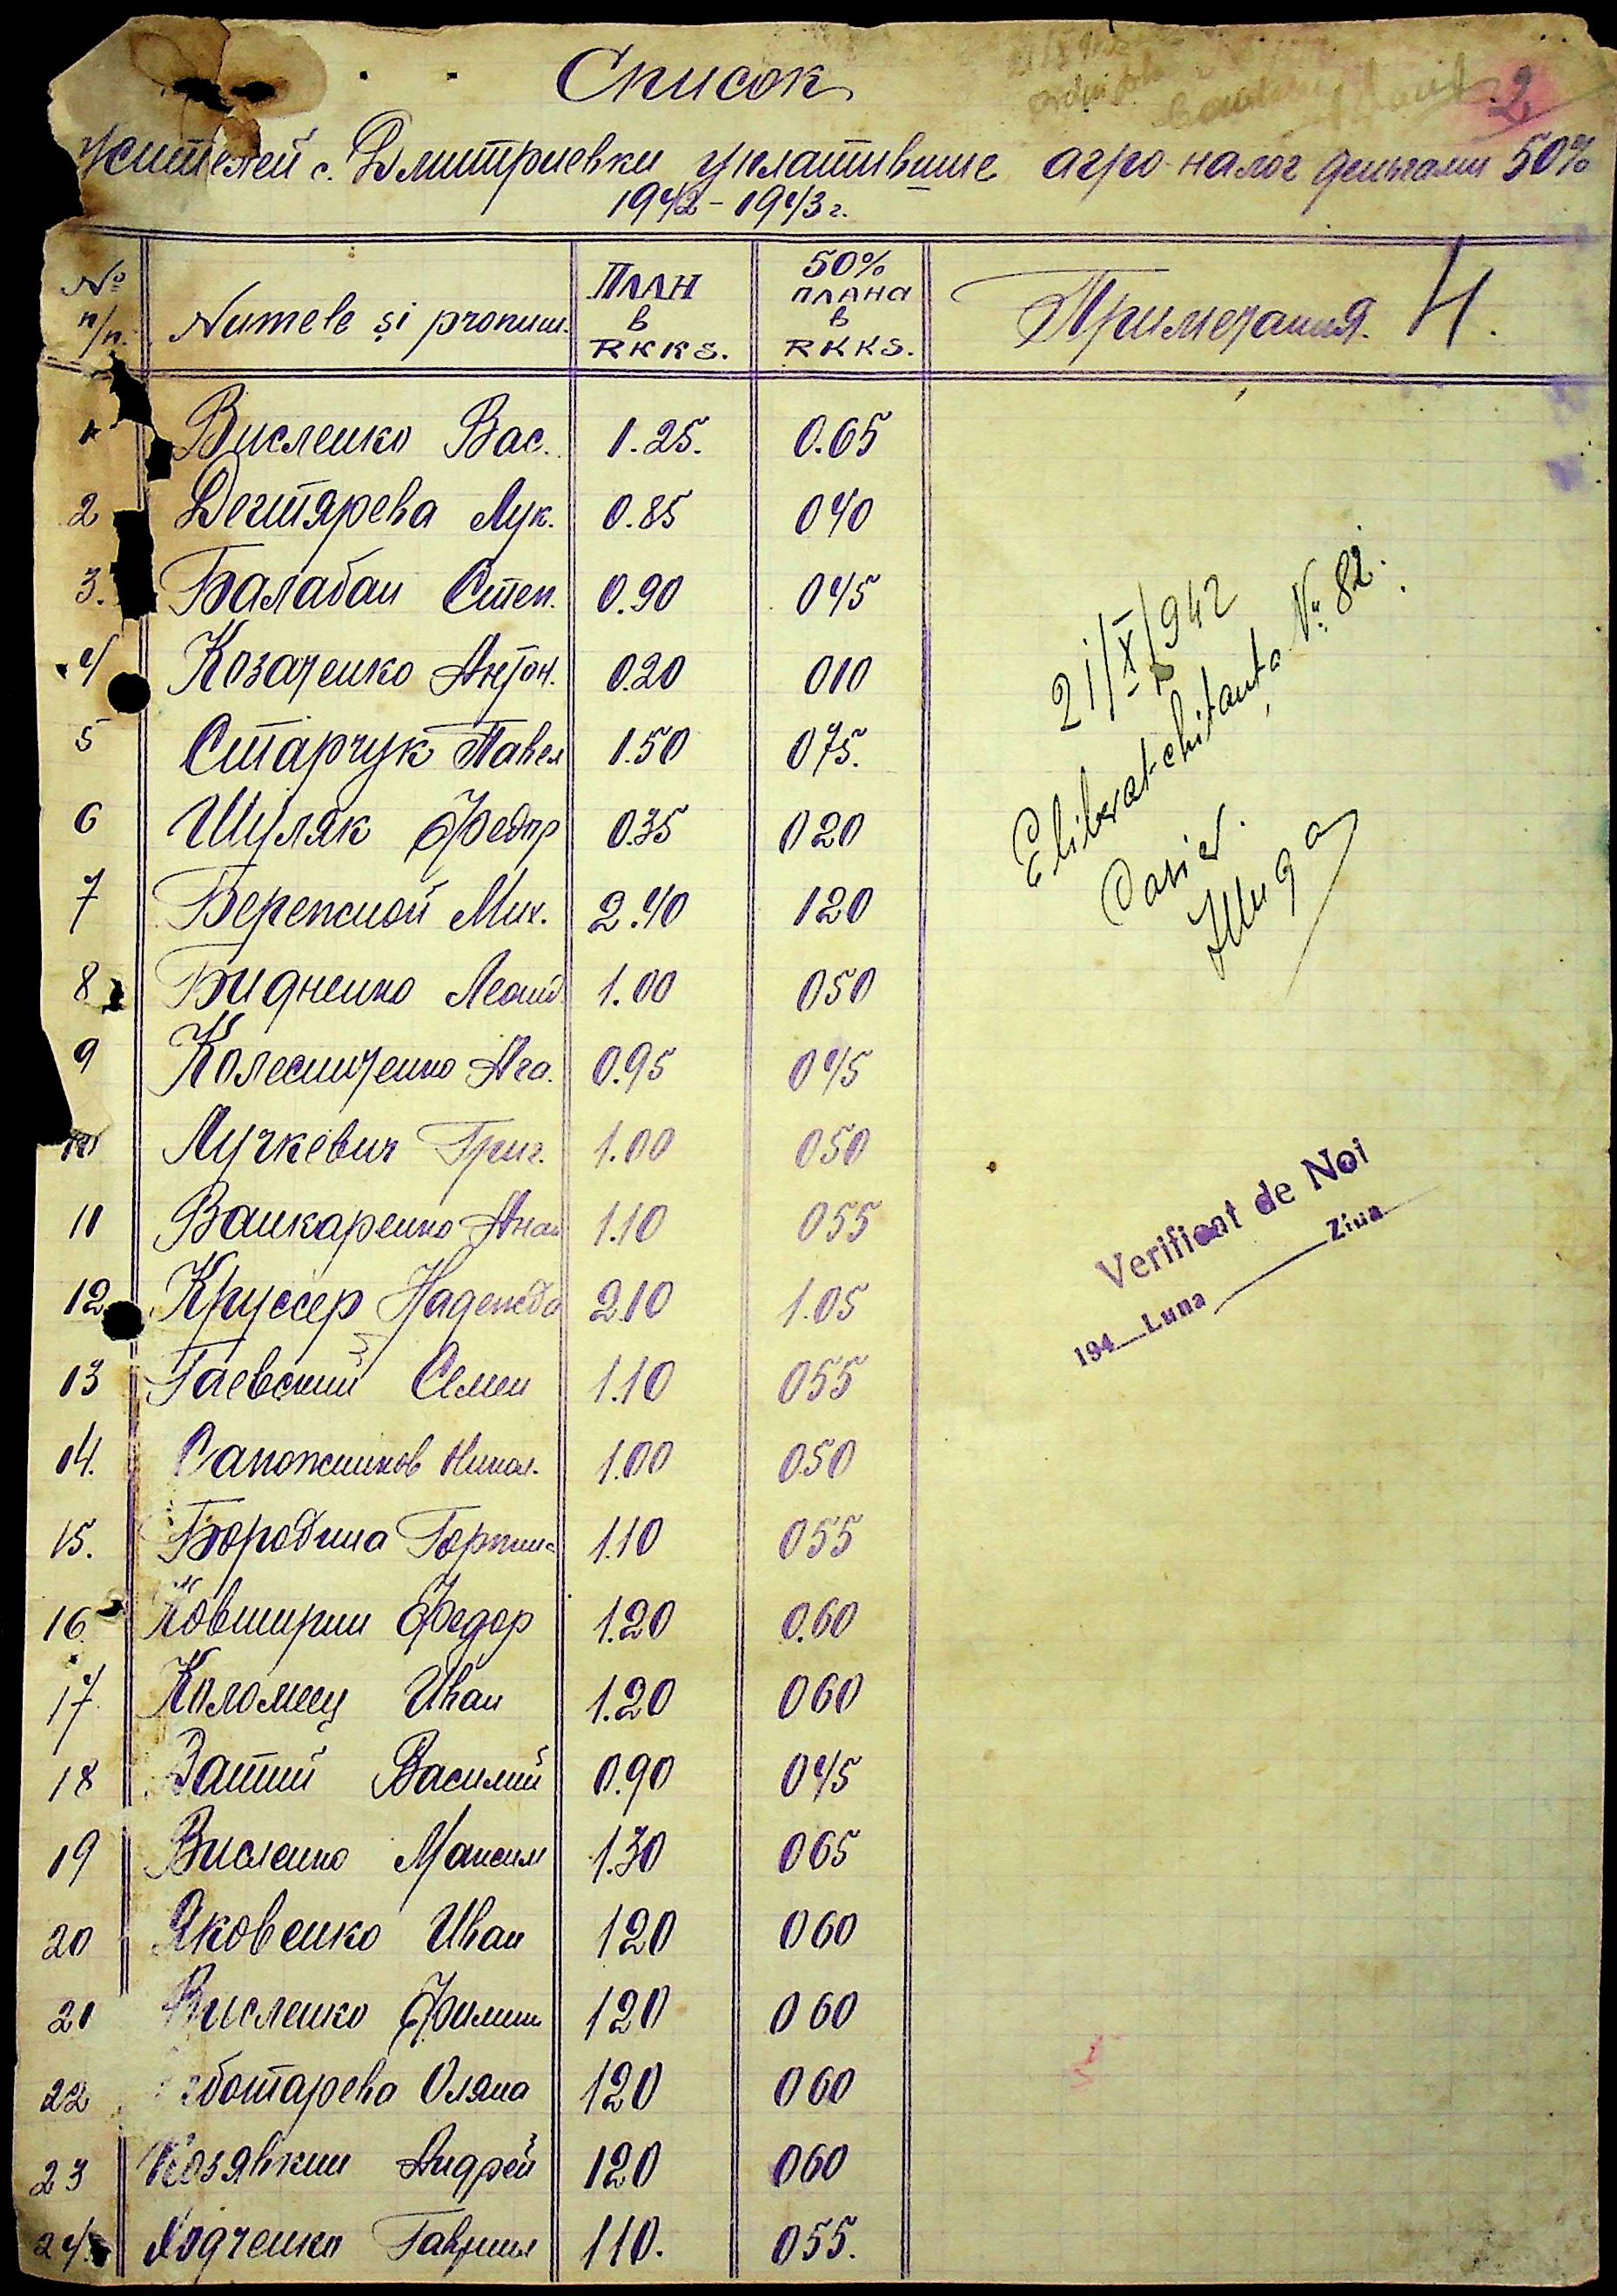 2
Список
жителей с. Дмитриевки уплатившие агро-налог деньгами 50%
1942-1943 г.
№ п/п. Numele și pronum. План в RKKS. 50% плана в RKKS. Примечания. 4.
1 Висленко Вас. 1.25. 0.65
2 Дегтярева Лук. 0.85 040
3. Балабан Степ. 0.90 045
4 Козаченко Антон. 0.20 010
5 Старчук Павел 1.50 075.
6 Шуляк Федор 0.35 020
7 Бережной Мих. 2.40 120
8 Бидненко Леонид 1.00 050
9 Колесниченко Ага. 0.95 045
10 Лучкевич Григ. 1.00 050
11 Ванкаренко Анан 1.10 055
12 Круссер Надежда 2.10 1.05
13 Гаевский Семен 1.10 055
14. Сапожников Никол. 1.00 050
15. Бородина Горпин 1.10 055
16. Ковширин Федор 1.20 0.60
17. Коломеец Иван 1.20 060
18 Затий Василий 0.90 045
19 Висленко Максим 1.30 065
20 Яковенко Иван 120 060
21 Висленко Филип 120 060
22 ботарева Оляна 120 060
23 Козявкин Андрей 120 060
24. Ходченко Гавриил 110. 055.
21/X/942
Eliberat chitanța № 82.
Casier.
Verificat de Noi
194 Luna Ziua